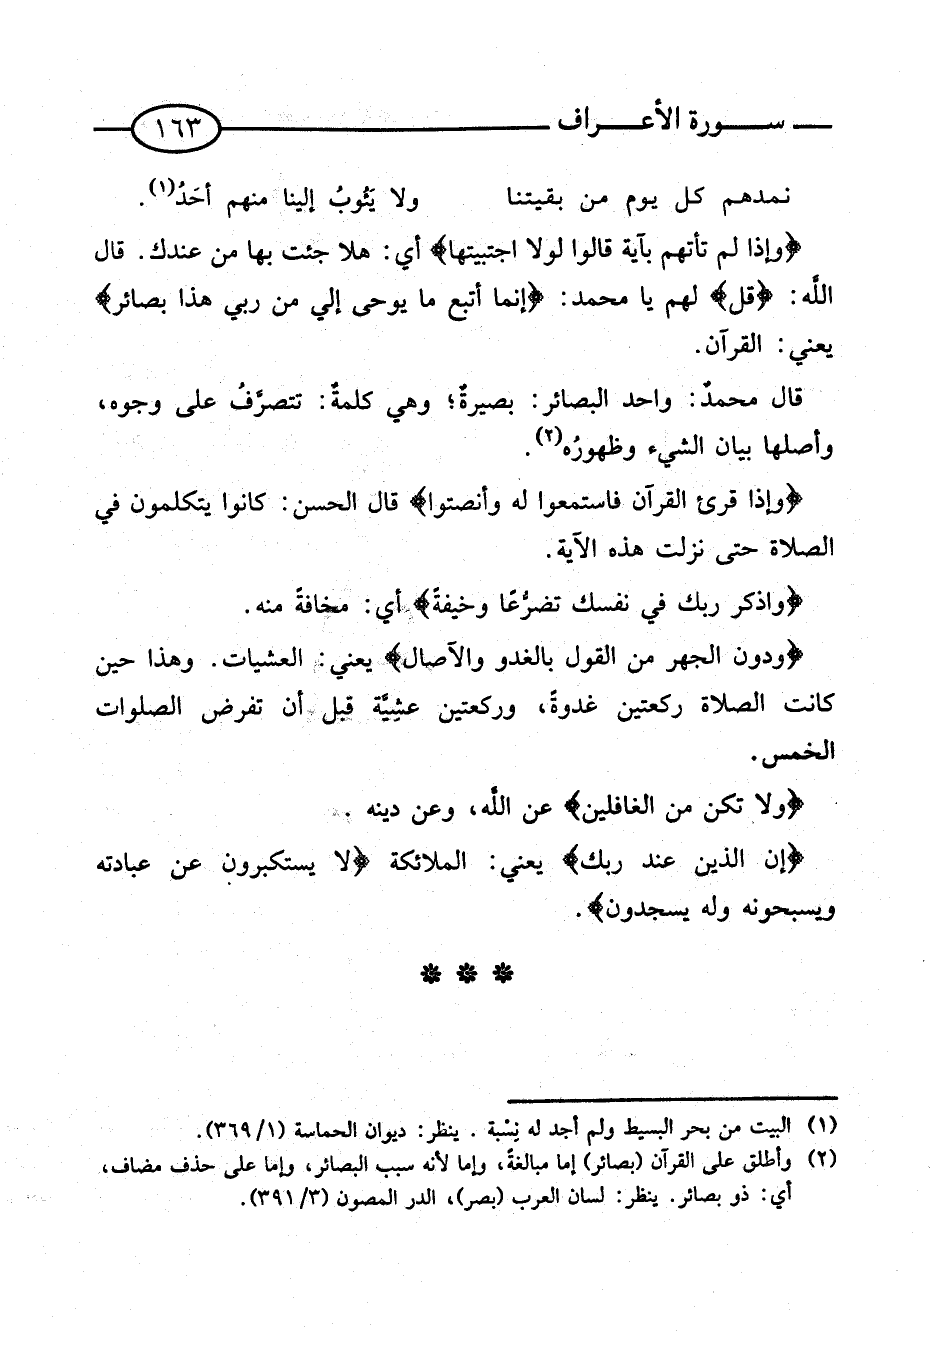 سورة الأعراف ١٦٣
نمدهم كل يوم من بقيتنا ولا يَثُوبُ إلينا منهم أحَدُ(١).
﴿وإذا لم تأتهم بآية قالوا لولا اجتبيتها﴾ أي: هلا جئت بها من عندك. قال
اللَّه: ﴿قل﴾ لهم يا محمد: ﴿إنما أتبع ما يوحى إلي من ربي هذا بصائر﴾
يعني: القرآن.
قال محمدٌ: واحد البصائر: بصيرةٌ؛ وهي كلمةٌ: تتصرَّفُ على وجوه،
وأصلها بيان الشيء وظهورُه(٢).
﴿وإذا قرئ القرآن فاستمعوا له وأنصتوا﴾ قال الحسن: كانوا يتكلمون في
الصلاة حتى نزلت هذه الآية.
﴿واذكر ربك في نفسك تضرُّعًا وخيفةً﴾ أي: مخافةً منه.
﴿ودون الجهر من القول بالغدو والآصال﴾ يعني: العشيات. وهذا حين
كانت الصلاة ركعتين غدوةً، وركعتين عشيَّة قبل أن تفرض الصلوات
الخمس.
﴿ولا تكن من الغافلين﴾ عن اللَّه، وعن دينه .
﴿إن الذين عند ربك﴾ يعني: الملائكة ﴿لا يستكبرون عن عبادته
ويسبحونه وله يسجدون﴾.
(١) البيت من بحر البسيط ولم أجد له نِسْبة . ينظر: ديوان الحماسة (١/ ٣٦٩).
(٢) وأطلق على القرآن (بصائر) إما مبالغةً، وإما لأنه سبب البصائر، وإما على حذف مضاف،
أي: ذو بصائر. ينظر: لسان العرب (بصر)، الدر المصون (٣/ ٣٩١).